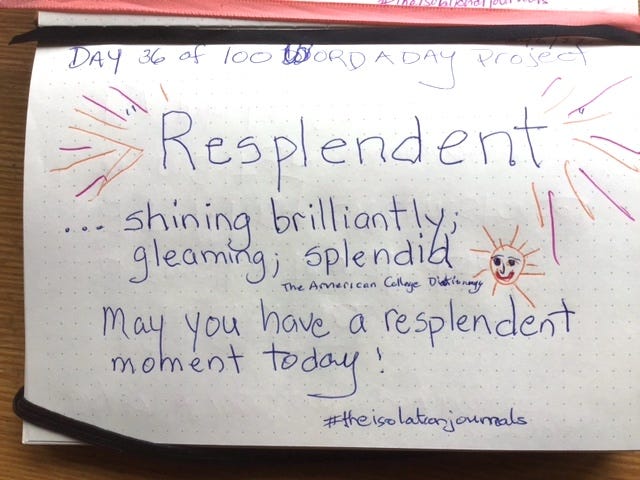 #theisolationjournals
DAY 36 of 100 WORD A DAY Project
Resplendent
... shining brilliantly;
gleaming; splendid
The American College Dictionary
May you have a resplendent
moment today!
#theisolationjournals